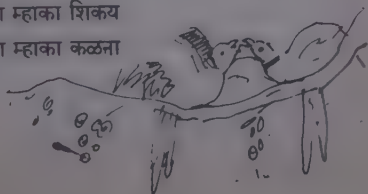 म्हाका शिकय
म्हाका कळना